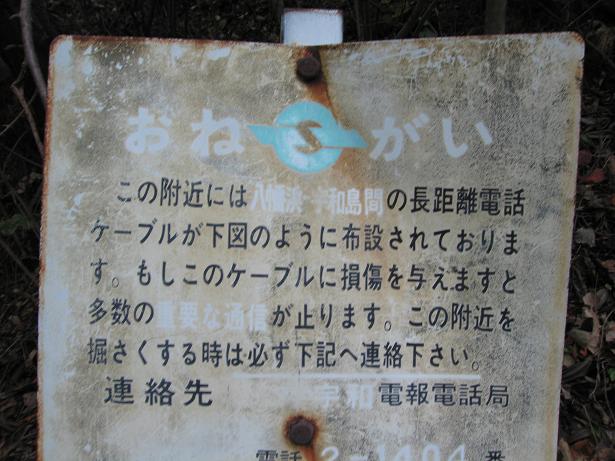 おねがい
この附近には八幡浜-宇和島間の長距離電話
ケーブルが下図のように布設されておりま
す。もしこのケーブルに損傷を与えますと
多数の重要な通信が止ります。この附近を
掘さくする時は必ず下記へ連絡下さい。
連絡先 宇和電報電話局
電話 2-1404 番